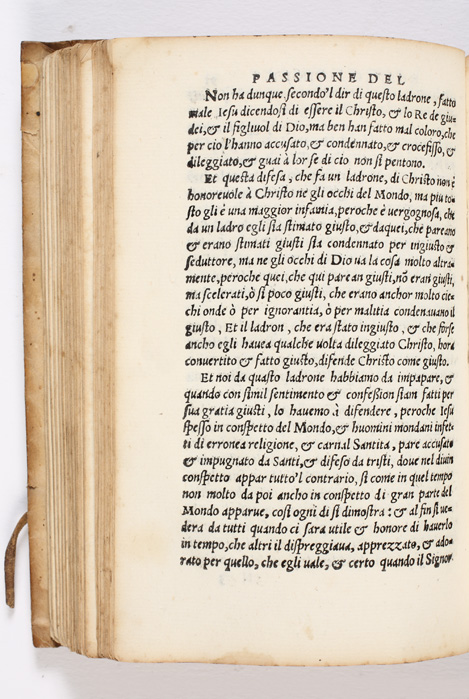 PASSIONE DEL
Non ha dunque secondo'l dir di questo ladrone, fatto
male Iesu dicendosi di essere il Christo, & lo Re de giu-
dei, & il figliuol di Dio, ma ben han fatto mal coloro, che
per cio l'hanno accusato, & condennato, & crocefisso, &
dileggiato, & guai à lor se di cio non si pentono.
Et questa difesa, che fa un ladrone, di Christo non è
honoreuole à Christo ne gli occhi del Mondo, ma piu to-
sto gli è una maggior infamia, peroche è uergognosa, che
da un ladro egli sia stimato giusto, & da quei, che pareano
& erano stimati giusti sia condennato per ingiusto &
seduttore, ma ne gli occhi di Dio ua la cosa molto altra-
mente, peroche quei, che qui parean giusti, nõ eran giusti,
ma scelerati, ò si poco giusti, che erano anchor molto cie-
chi onde ò per ignorantia, ò per malitia condenauano il
giusto, Et il ladron, che era stato ingiusto, & che forse
ancho egli hauea qualche uolta dileggiato Christo, hora
conuertito & fatto giusto, difende Christo come giusto.
Et noi da quasto ladrone habbiamo da impapare, &
quando con simil sentimento & confession siam fatti per
sua gratia giusti, lo hauemo à difendere, peroche Iesu
spesso in conspetto del Mondo, & huomini mondani infet-
ti di erronea religione, & carnal Santita, pare accusato
& impugnato da Santi, & difeso da tristi, doue nel diuin
conspetto appar tutto'l contrario, si come in quel tempo
non molto da poi ancho in conspetto di gran parte del
Mondo apparue, così ogni dì si dimostra: & al fin si ue-
dera da tutti quando ci sara utile & honore di hauerlo
in tempo, che altri il dispreggiaua, apprezzato, & ado-
rato per quello, che egli uale, & certo quando il Signor